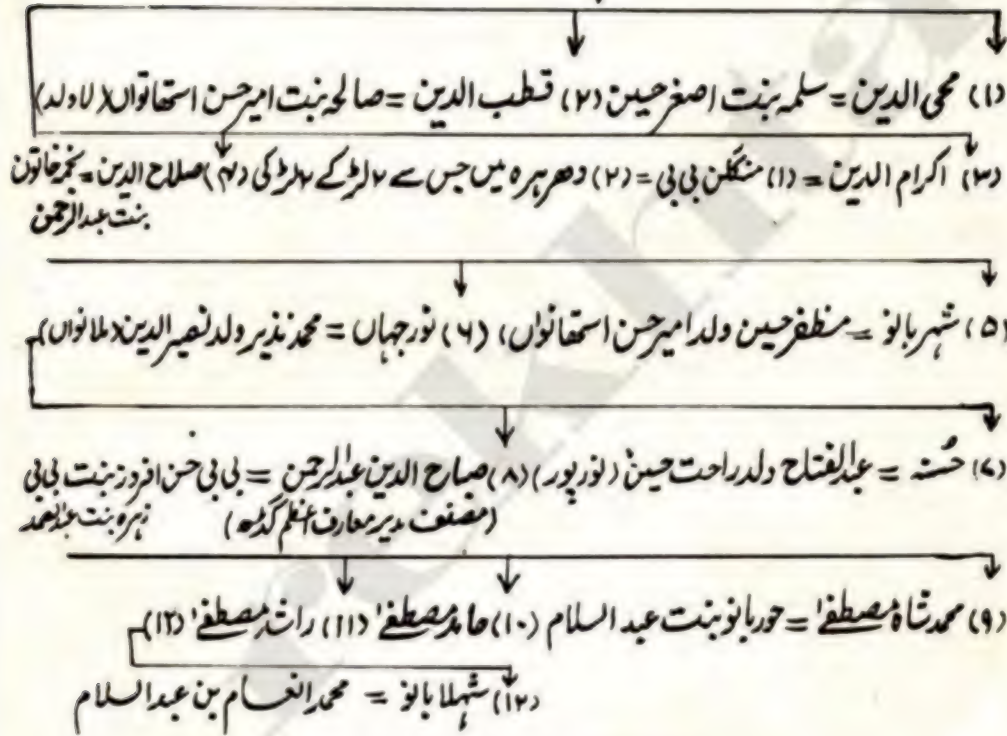 (۱) محی الدین = سلمہ بنت اصغر حسین (۲) قطب الدین = صالحہ بنت امیر حسن استھانواں (لاولد)
(۳) اکرام الدین = (۱) منگلن بی بی = (۲) دھرہرہ میں جس سے ۲ لڑکے ۲ لڑکی (۴) صلاح الدین = نجمہ خاتون
بنت عبدالرحمن
(۵) شہر بانو = مظفر حسین ولد امیر حسن استھانواں، (۶) نور جہاں = محمد نذیر ولد نصیر الدین (ملانواں)
(۷) حُسنہ = عبدالفتاح ولد راحت حسین (نور پور) (۸) صباح الدین عبدالرحمن = بی بی حسن افروز بنت بی بی
(مصنف مدیر معارف اعظم گڈھ) زہرہ بنت عبدالصمد
(۹) محمد شاہ مصطفےٰ = حور بانو بنت عبد السلام (۱۰) حامد مصطفےٰ (۱۱) راشد مصطفےٰ (۱۲)
(۱۲) شہلا بانو = محمد انعام بن عبد السلام